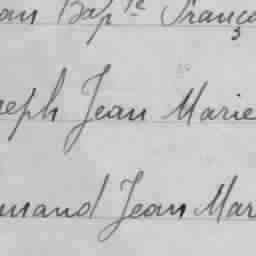 an Bapte Franço
seph Jean Marie
mand Jean Mar